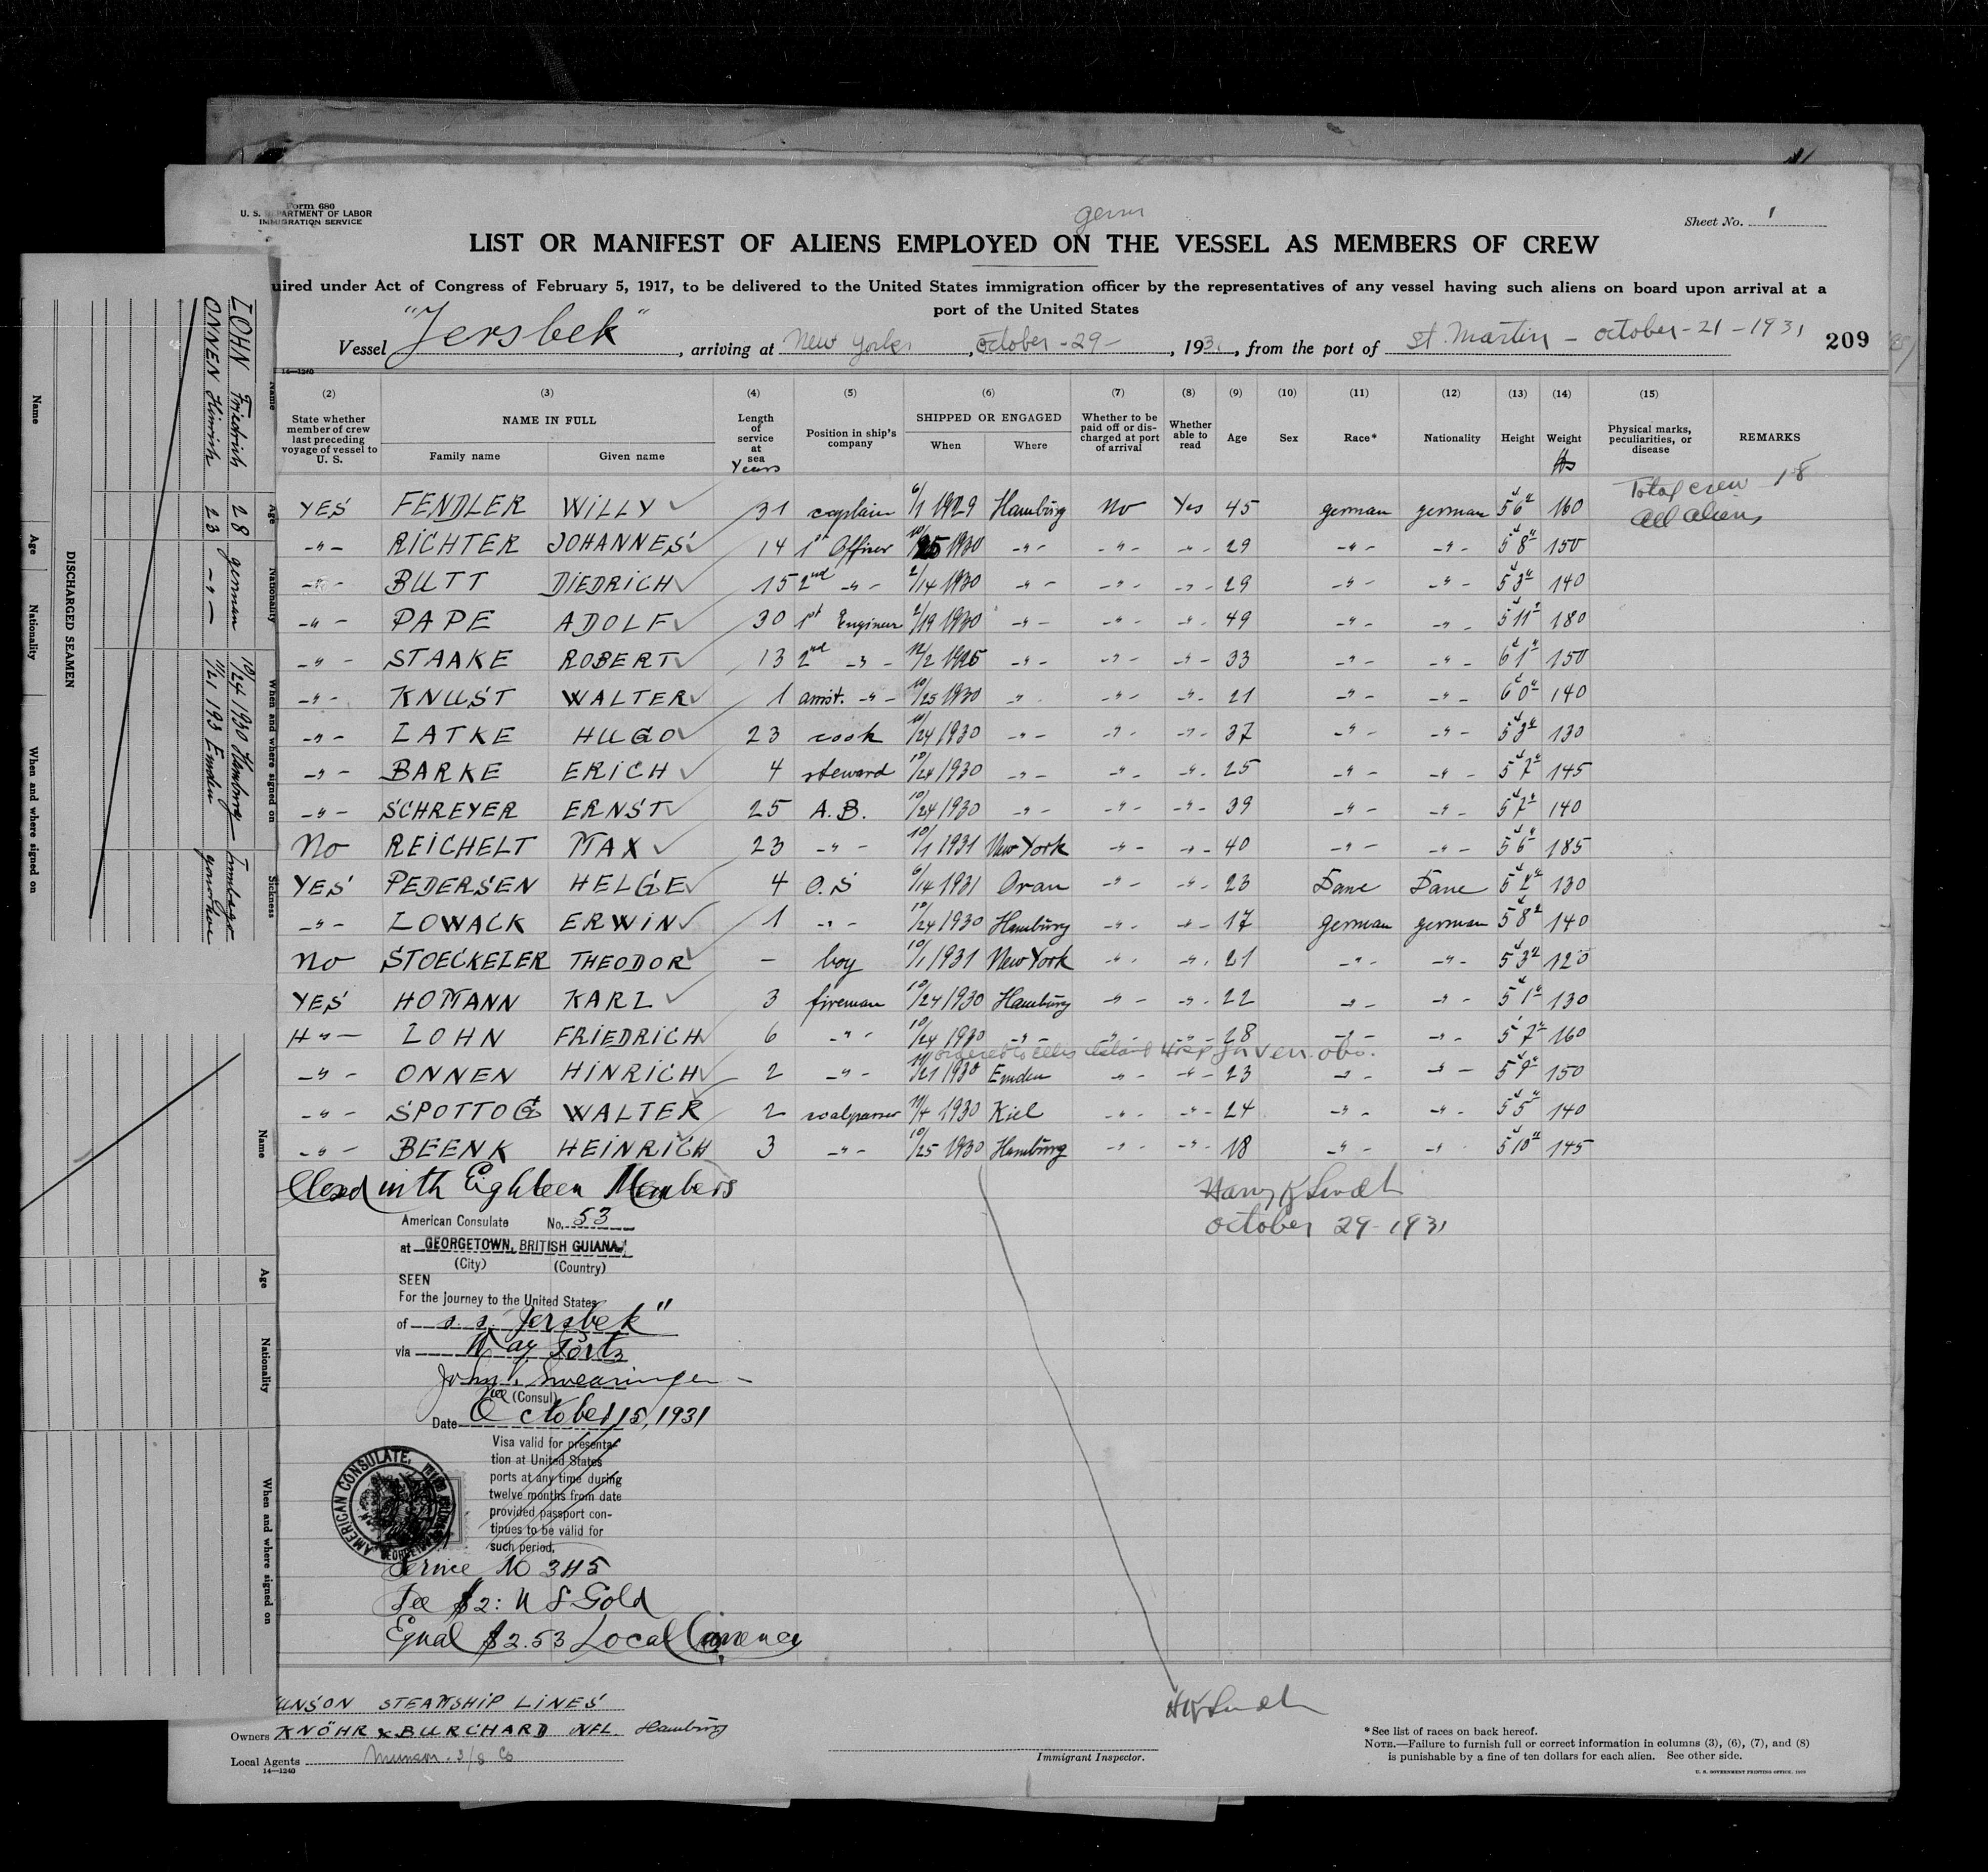 Form 680
U. S. DEPARTMENT OF LABOR
IMMIGRATION SERVICE
germ
Sheet No. 1
LIST OR MANIFEST OF ALIENS EMPLOYED ON THE VESSEL AS MEMBERS OF CREW
uired under Act of Congress of February 5, 1917, to be delivered to the United States immigration officer by the representatives of any vessel having such aliens on board upon arrival at a
port of the United States
Vessel "Jersbek", arriving at New York, October-29-, 1931, from the port of St. Martin - October-21-1931 209
14—1240
(2) (3) (4) (5) (6) (7) (8) (9) (10) (11) (12) (13) (14) (15)
State whether member of crew last preceding voyage of vessel to U. S. NAME IN FULL Family name Given name Length of service at sea Years Position in ship's company SHIPPED OR ENGAGED When Where Whether to be paid off or discharged at port of arrival Whether able to read Age Sex Race* Nationality Height Weight lbs Physical marks, peculiarities, or disease REMARKS
Total crew 18
All aliens
YES FENDLER WILLY 31 captain 6/1 1929 Hamburg No Yes 45 german german 5 6" 160
-"- RICHTER JOHANNES 14 1st Officer 10/25 1930 -"- -"- -"- 29 -"- -"- 5 8" 150
-"- BUTT DIEDRICH 15 2nd -"- 2/14 1930 -"- -"- -"- 29 -"- -"- 5 3" 140
-"- PAPE ADOLF 30 1st Engineer 2/19 1930 -"- -"- -"- 49 -"- -"- 5 11" 180
-"- STAAKE ROBERT 13 2nd -"- 12/2 1925 -"- -"- -"- 33 -"- -"- 6 1" 150
-"- KNUST WALTER 1 assist. -"- 10/25 1930 -"- -"- -"- 21 -"- -"- 6 0" 140
-"- LATKE HUGO 23 cook 10/24 1930 -"- -"- -"- 37 -"- -"- 5 3" 130
-"- BARKE ERICH 4 steward 10/24 1930 -"- -"- -"- 25 -"- -"- 5 7" 145
-"- SCHREYER ERNST 25 A.B. 10/24 1930 -"- -"- -"- 39 -"- -"- 5 7" 140
No REICHELT MAX 23 -"- 10/1 1931 New York -"- -"- 40 -"- -"- 5 6" 185
YES PEDERSEN HELGE 4 O.S 6/14 1931 Oran -"- -"- 23 Dane Dane 5 2" 130
-"- LOWACK ERWIN 1 -"- 10/24 1930 Hamburg -"- -"- 17 german german 5 8" 140
No STOECKELER THEODOR - boy 10/1 1931 New York -"- -"- 21 -"- -"- 5 3" 120
YES HOMANN KARL 3 fireman 10/24 1930 Hamburg -"- -"- 22 -"- -"- 5 1" 130
-"- LOHN FRIEDRICH 6 -"- 10/24 1930 -"- -"- -"- 28 -"- -"- 5 7" 160
ordered to Ellis Island Hosp for ven. obs.
-"- ONNEN HINRICH 2 -"- 11/21 1930 Emden -"- -"- 23 -"- -"- 5 9" 150
-"- SPOTTOG WALTER 2 coalpasser 11/4 1930 Kiel -"- -"- 24 -"- -"- 5 5" 140
-"- BEENK HEINRICH 3 -"- 10/25 1930 Hamburg -"- -"- 18 -"- -"- 5 10" 145
Closed with Eighteen Members
October 29-1931
American Consulate No. 53
at GEORGETOWN, BRITISH GUIANA
(City) (Country)
SEEN
For the journey to the United States
of s. s. Jersbek"
via Way Ports
John Swearingen
Vice (Consul)
Date October 15, 1931
Visa valid for presenta-
tion at United States
ports at any time during
twelve months from date
provided passport con-
tinues to be valid for
such period.
AMERICAN CONSULATE,
Service No 345
Fee $2: U S Gold
Equal $2.53 Local Currency
UNSON STEAMSHIP LINES
Owners KNÖHR & BURCHARD NFL. Hamburg
Local Agents Munson S/S Co
14—1240
Immigrant Inspector.
*See list of races on back hereof.
NOTE.—Failure to furnish full or correct information in columns (3), (6), (7), and (8)
is punishable by a fine of ten dollars for each alien. See other side.
DISCHARGED SEAMEN
Name Age Nationality When and where signed on Sickness
LOHN Friedrich 28 german 10/24 1930 Hamburg Lumbago
ONNEN Hinrich 23 -"- 11/21 193 Emden
Name Age Nationality When and where signed on
Name Age Nationality When and where signed on